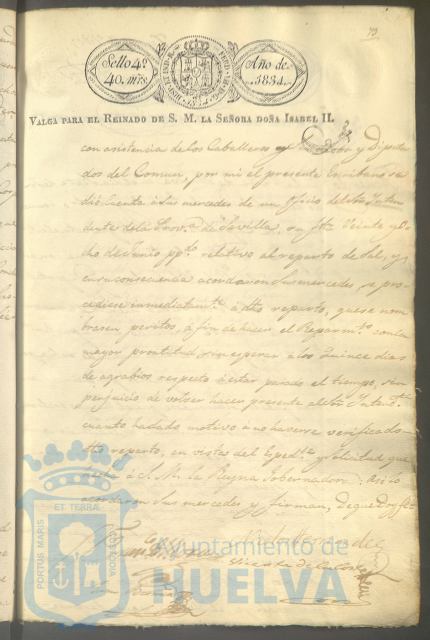 73
Sello 4º
40. mrs.
HISP. ET IND. R.
Año de
1834.
VALGA PARA EL REINADO DE S. M. LA SEÑORA DOÑA ISABEL II.
con asistencia de los Caballeros y Diputa
dos del Comun, por mi el presente Escribano se
dió cuenta á sus mercedes de un oficio del Sor. Inten
dente de la Prova. de Sevilla, su fha. Veinte y O
cho de Junio ppdo. relativo al reparto de Sal, y
en su consecuencia acordaron sus mercedes, se pro
cediese inmediatamte. á dho reparto, que se nom
brasen peritos, á fin de hacer el Repartmto. con la
mayor prontitud sin esperar á los Quince dias
de agrabios respecto á estar pasado el tiempo, sin
perjuicio de volver hacer presente al Sor. Intendte.
cuanto ha dado motivo á no haverse verificado
dho reparto, en vistas del Expedte. y solicitud que
hecha á S. M. la Reyna Gobernadora. Asi lo
acordaron sus mercedes y firman, de que doy fe
PORTUS MARIS
ET TERRÆ
CUSTODIA
Ayuntamiento de
HUELVA